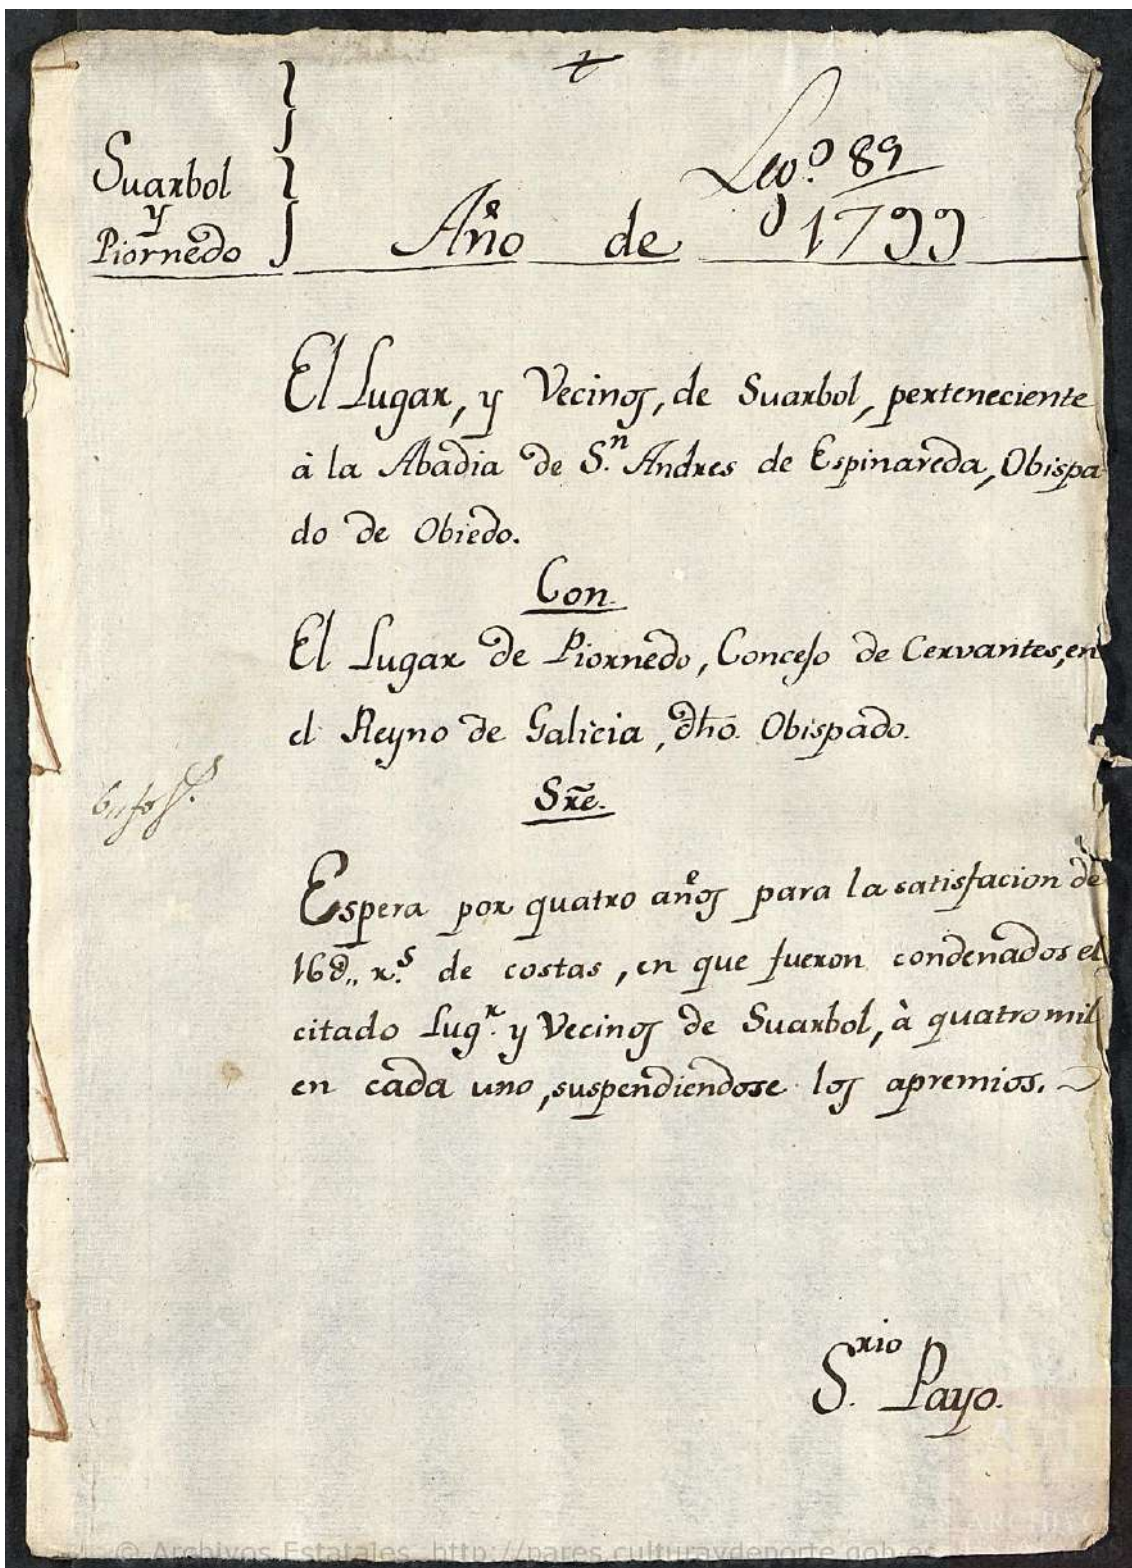 Leg.º 89
Suarbol
y
Piornedo
Año de 1799
El Lugar, y Vecinos, de Suarbol, perteneciente
à la Abadia de S.n Andres de Espinareda, Obispa
do de Obiedo.
Con
El Lugar de Piornedo, Concejo de Cervantes, en
el Reyno de Galicia, dho. Obispado.
Sre.
Espera por quatro años para la satisfacion de
16@,, r.s de costas, en que fueron condenados el
citado Lug.r y Vecinos de Suarbol, à quatro mil
en cada uno, suspendiendose los apremios.
S.rio Payo.
© Archivos Estatales, http://pares.culturaydeporte.gob.es